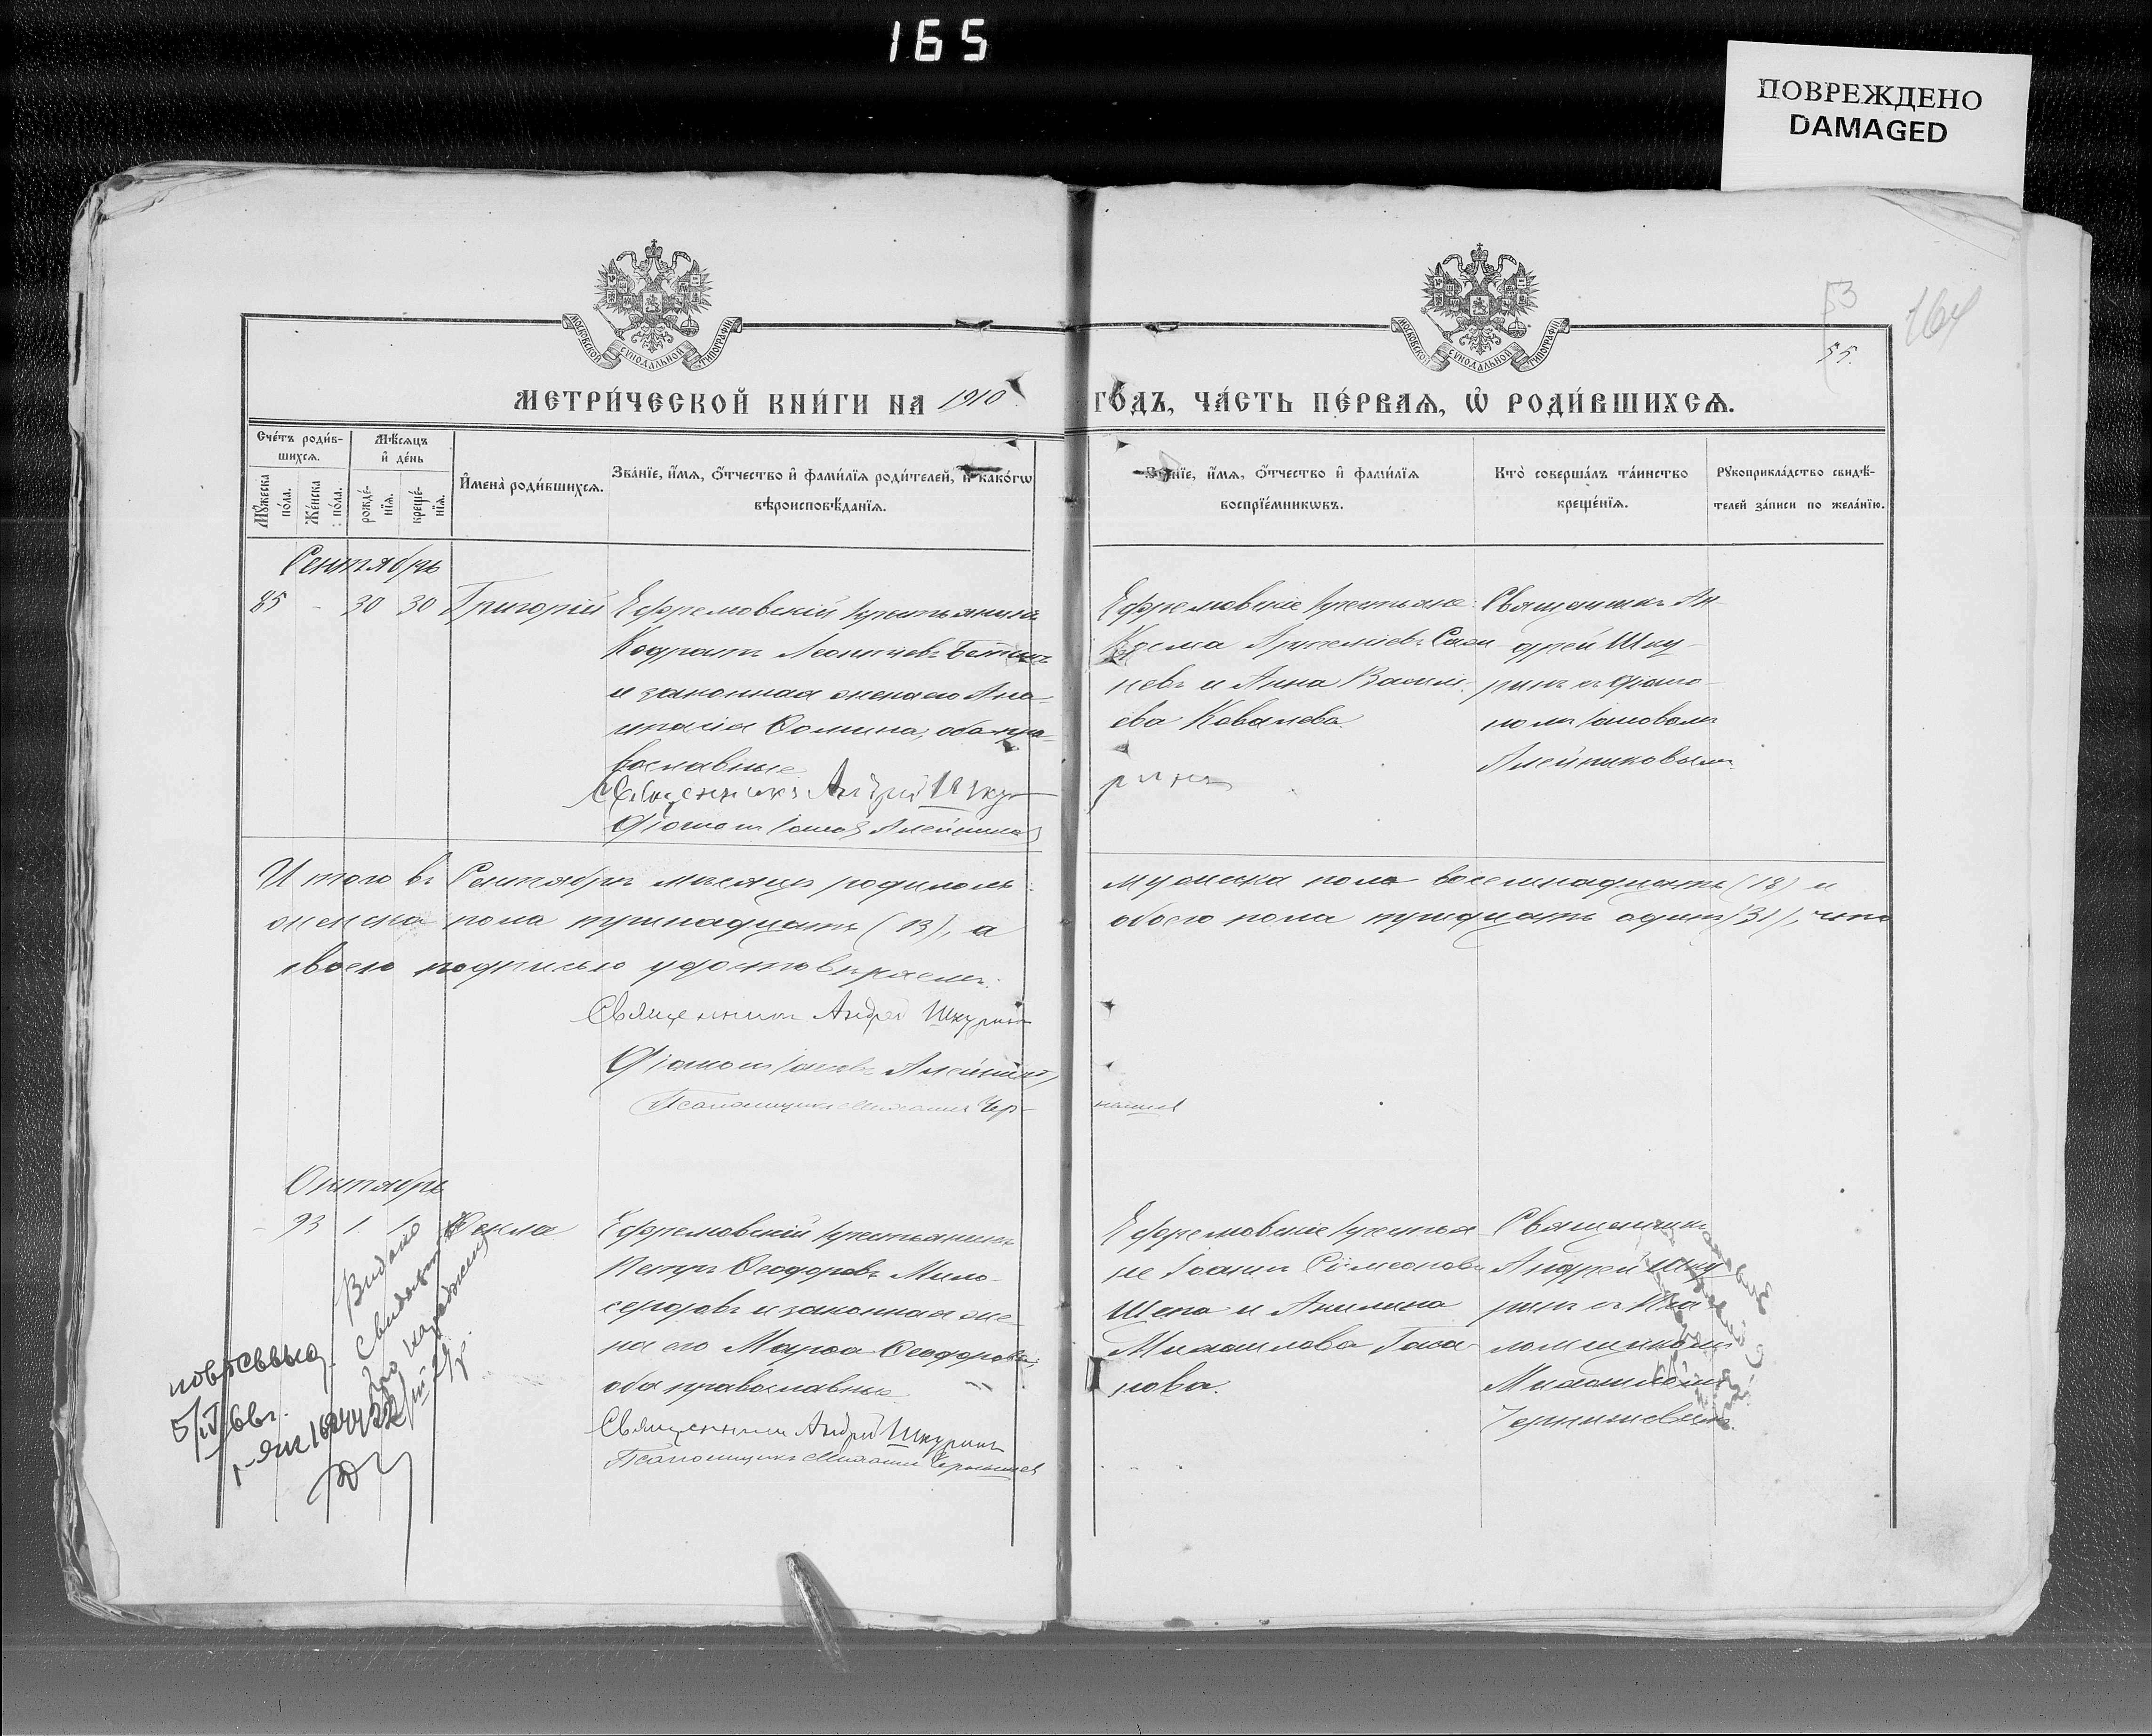 165
ПОВРЕЖДЕНО
DAMAGED
53
164
55.
МОСКОВСКОЙ СѴНОДАЛЬНОЙ ТИПОГРАФІИ
МОСКОВСКОЙ СѴНОДАЛЬНОЙ ТИПОГРАФІИ
МЕТРИ́ЧЕСКОЙ КНИ́ГИ НА 1910
ГО́ДЪ, ЧА́СТЬ ПЕ́РВАѦ, Ѡ҆ РОДИ́ВШИХСѦ.
Сче́тъ роди́в-
шихсѧ.
Мꙋ́жеска по́ла.
Же́нска по́ла.
Мѣ́сѧцъ
и҆ де́нь
рожде́-
нїѧ.
креще́-
нїѧ.
И҆мена̀ роди́вшихсѧ.
Зва́нїе, и҆́мѧ, ѻ҆́тчество и҆ фами́лїѧ роди́телей, и҆ како́гѡ
вѣроисповѣ́данїѧ.
Зва́нїе, и҆́мѧ, ѻ҆́тчество и҆ фами́лїѧ
воспрїе́мникѡвъ.
Кто̀ соверша́лъ та́инство
креще́нїѧ.
Рꙋкоприкла́дство свидѣ́-
телей за́писи по жела́нїю.
Сентябрь
85 - 30 30 Григорій
Ефремовскій крестьянинъ
Кодратъ Леонтіевъ
и законная жена его Ана-
Ѳомина, оба пра-
вославные.
Священникъ Андрей Шку-
ринъ
Діаконъ Іаковъ Алейников
Ефремовскіе крестьяне:
Козма
невъ и Анна Василі-
ева Ковалева.
Священникъ Ан-
дрей Шку-
ринъ съ діако-
номъ Іаковомъ
Алейниковымъ.
Итого въ Сентябрѣ мѣсяцѣ родилось
мужеска пола восемнадцать (18) и
женска пола тринадцать (13), а
обоего пола тридцать одинъ (31), что
своею подписью удостовѣряемъ:
Священникъ Андрей Шкуринъ
Діаконъ Іаковъ Алейников
Псаломщикъ Михаилъ Чер-
нышев
Октябрь
- 93 1 10 Ѳекла
Ефремовскій крестьянинъ
Петръ Ѳеодоровъ Мило-
сердовъ и законная же-
на его Марѳа Ѳеодорова,
оба православные
Священникъ Андрей Шкуринъ
Псаломщикъ Михаилъ Чернышев
Ефремовскіе крестья-
не Іоаннъ Сѵмеоновъ
Щепа и Акилина
Михаилова Гапо-
нова.
Священникъ
Андрей Шку-
ринъ съ Пса-
ломщикомъ
Михаиломъ
Чернышевымъ.
Видано